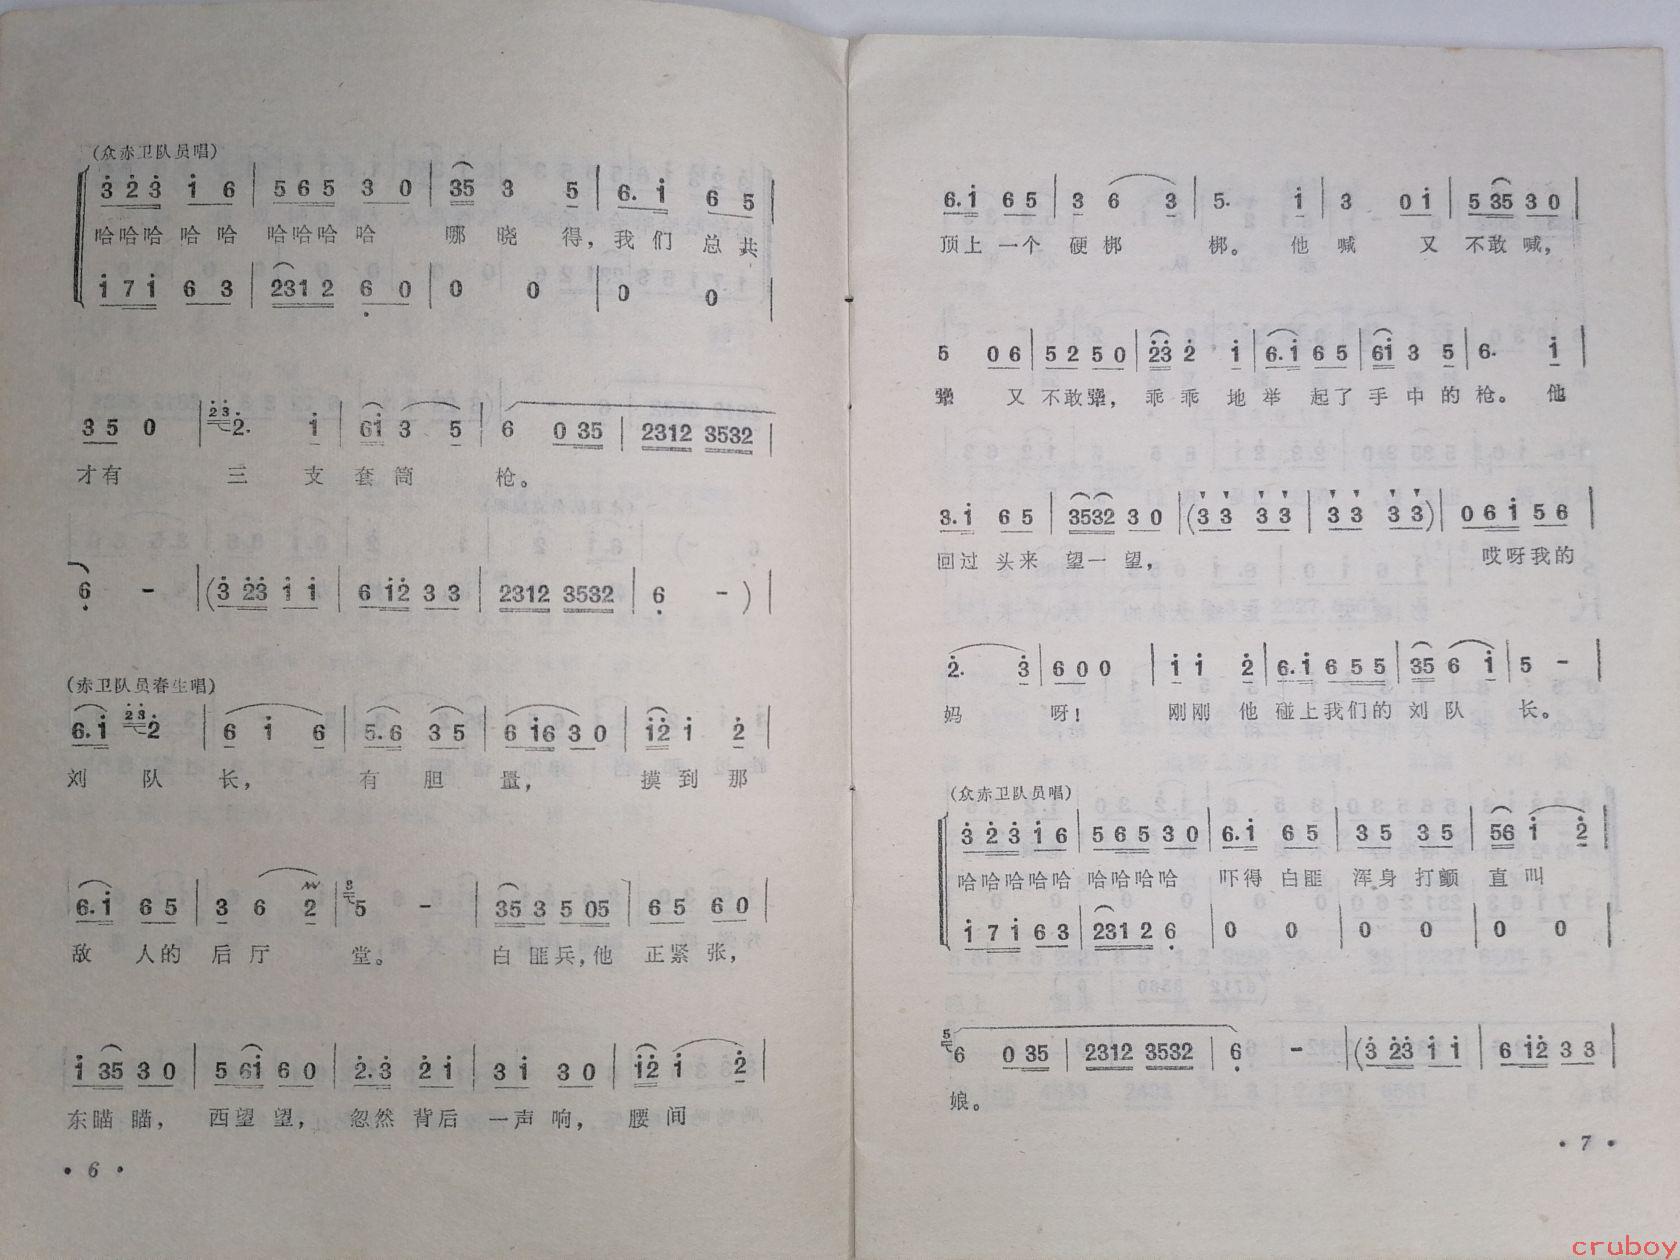 (众赤卫队员唱)
3 2 3 1 6 | 5 6 5 3 0 | 35 3 5 | 6. 1 6 5
哈哈哈 哈 哈 哈哈哈 哈 哪 晓 得,我 们 总 共
1 7 1 6 3 | 2312 6 0 | 0 0 | 0 0
3 5 0 | 23 2. 1 | 61 3 5 | 6 0 35 | 2312 3532 |
才有 三 支 套 筒 枪。
6 - | (3 23 1 1 | 6 12 3 3 | 2312 3532 | 6 - ) |
(赤卫队员春生唱)
6. 1 23 2 | 6 1 6 | 5. 6 3 5 | 6 16 3 0 | 12 1 2 |
刘 队 长, 有 胆 量, 摸 到 那
6. 1 6 5 | 3 6 2 | 3 5 - | 35 3 5 05 | 6 5 6 0 |
敌 人的 后 厅 堂。 白 匪兵,他 正紧 张,
1 35 3 0 | 5 61 6 0 | 2. 3 2 1 | 3 1 3 0 | 12 1 2 |
东瞄 瞄, 西望 望, 忽然 背后 一声 响, 腰 间
• 6 •
6. 1 6 5 | 3 6 3 | 5. 1 | 3 0 1 | 5 35 3 0 |
顶上 一个 硬 梆 梆。 他 喊 又 不敢 喊,
5 0 6 | 5 2 5 0 | 23 2 1 | 6. 1 6 5 | 61 3 5 | 6. 1 |
又 不敢 , 乖 乖 地 举 起了 手 中 的 枪。 他
3. 1 6 5 | 3532 3 0 | (3 3 3 3 | 3 3 3 3) | 0 6 1 5 6 |
回过 头来 望一 望, 哎呀我的
2. 3 | 6 0 0 | 1 1 2 | 6. 1 6 5 5 | 35 6 1 | 5 - |
妈 呀! 刚刚 他 碰上我们的 刘 队 长。
(众赤卫队员唱)
3 2 3 1 6 | 5 6 5 3 0 | 6. 1 6 5 | 3 5 3 5 | 56 1 2 |
哈哈哈哈哈 哈哈哈哈 吓得 白匪 浑身 打颤 直 叫
1 7 1 6 3 | 231 2 6 | 0 0 | 0 0 | 0 0 |
5 6 0 35 | 2312 3532 | 6 - | (3 23 1 1 | 6 12 3 3 |
娘。
• 7 •
cruboy